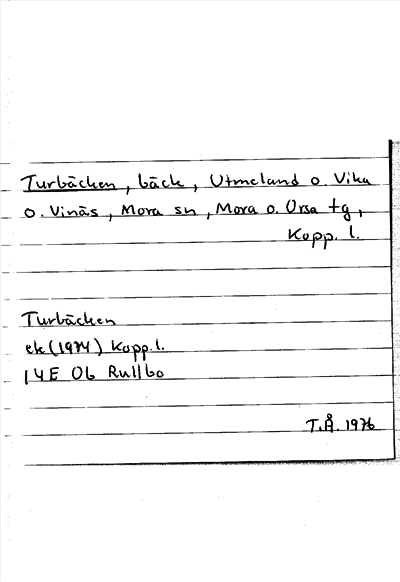 Turbäcken, bäck, Utmeland o. Vika
o. Vinäs, Mora sn, Mora o. Orsa tg,
Kopp. l.
Turbäcken
ek (1974) Kopp. l.
14E 0b Rullbo
T.Å. 1976